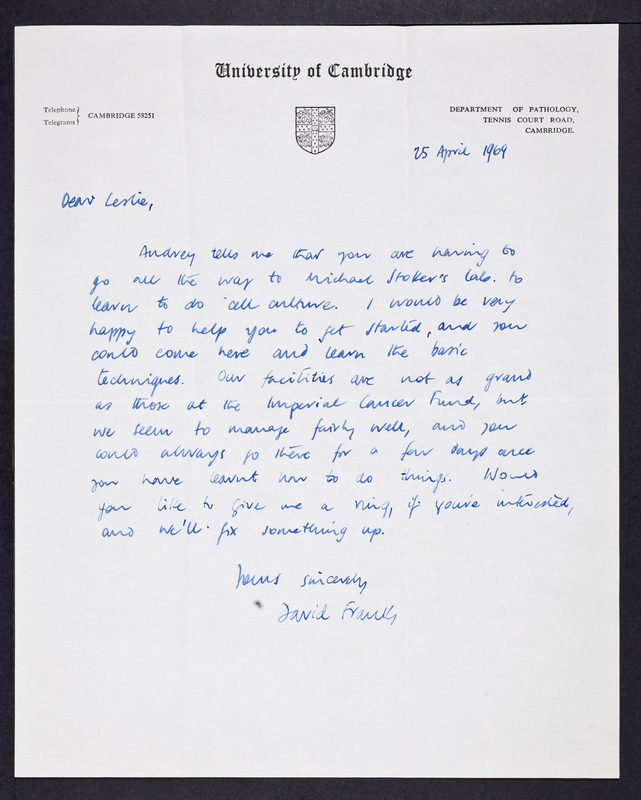 University of Cambridge
Telephone
Telegrams
CAMBRIDGE 58251
DEPARTMENT OF PATHOLOGY,
TENNIS COURT ROAD,
CAMBRIDGE.
25 April 1969
Dear Leslie,
Audrey tells me that you are having to
go all the way to Michael Stoker's lab. to
learn to do cell culture. I would be very
happy to help you to get started, and you
could come here and learn the basic
techniques. Our facilities are not as grand
as those at the Imperial Cancer Fund, but
we seem to manage fairly well, and you
could always go there for a few days once
you have learnt how to do things. Would
you like to give me a ring, if you're interested,
and we'll fix something up.
Yours sincerely
David Franks